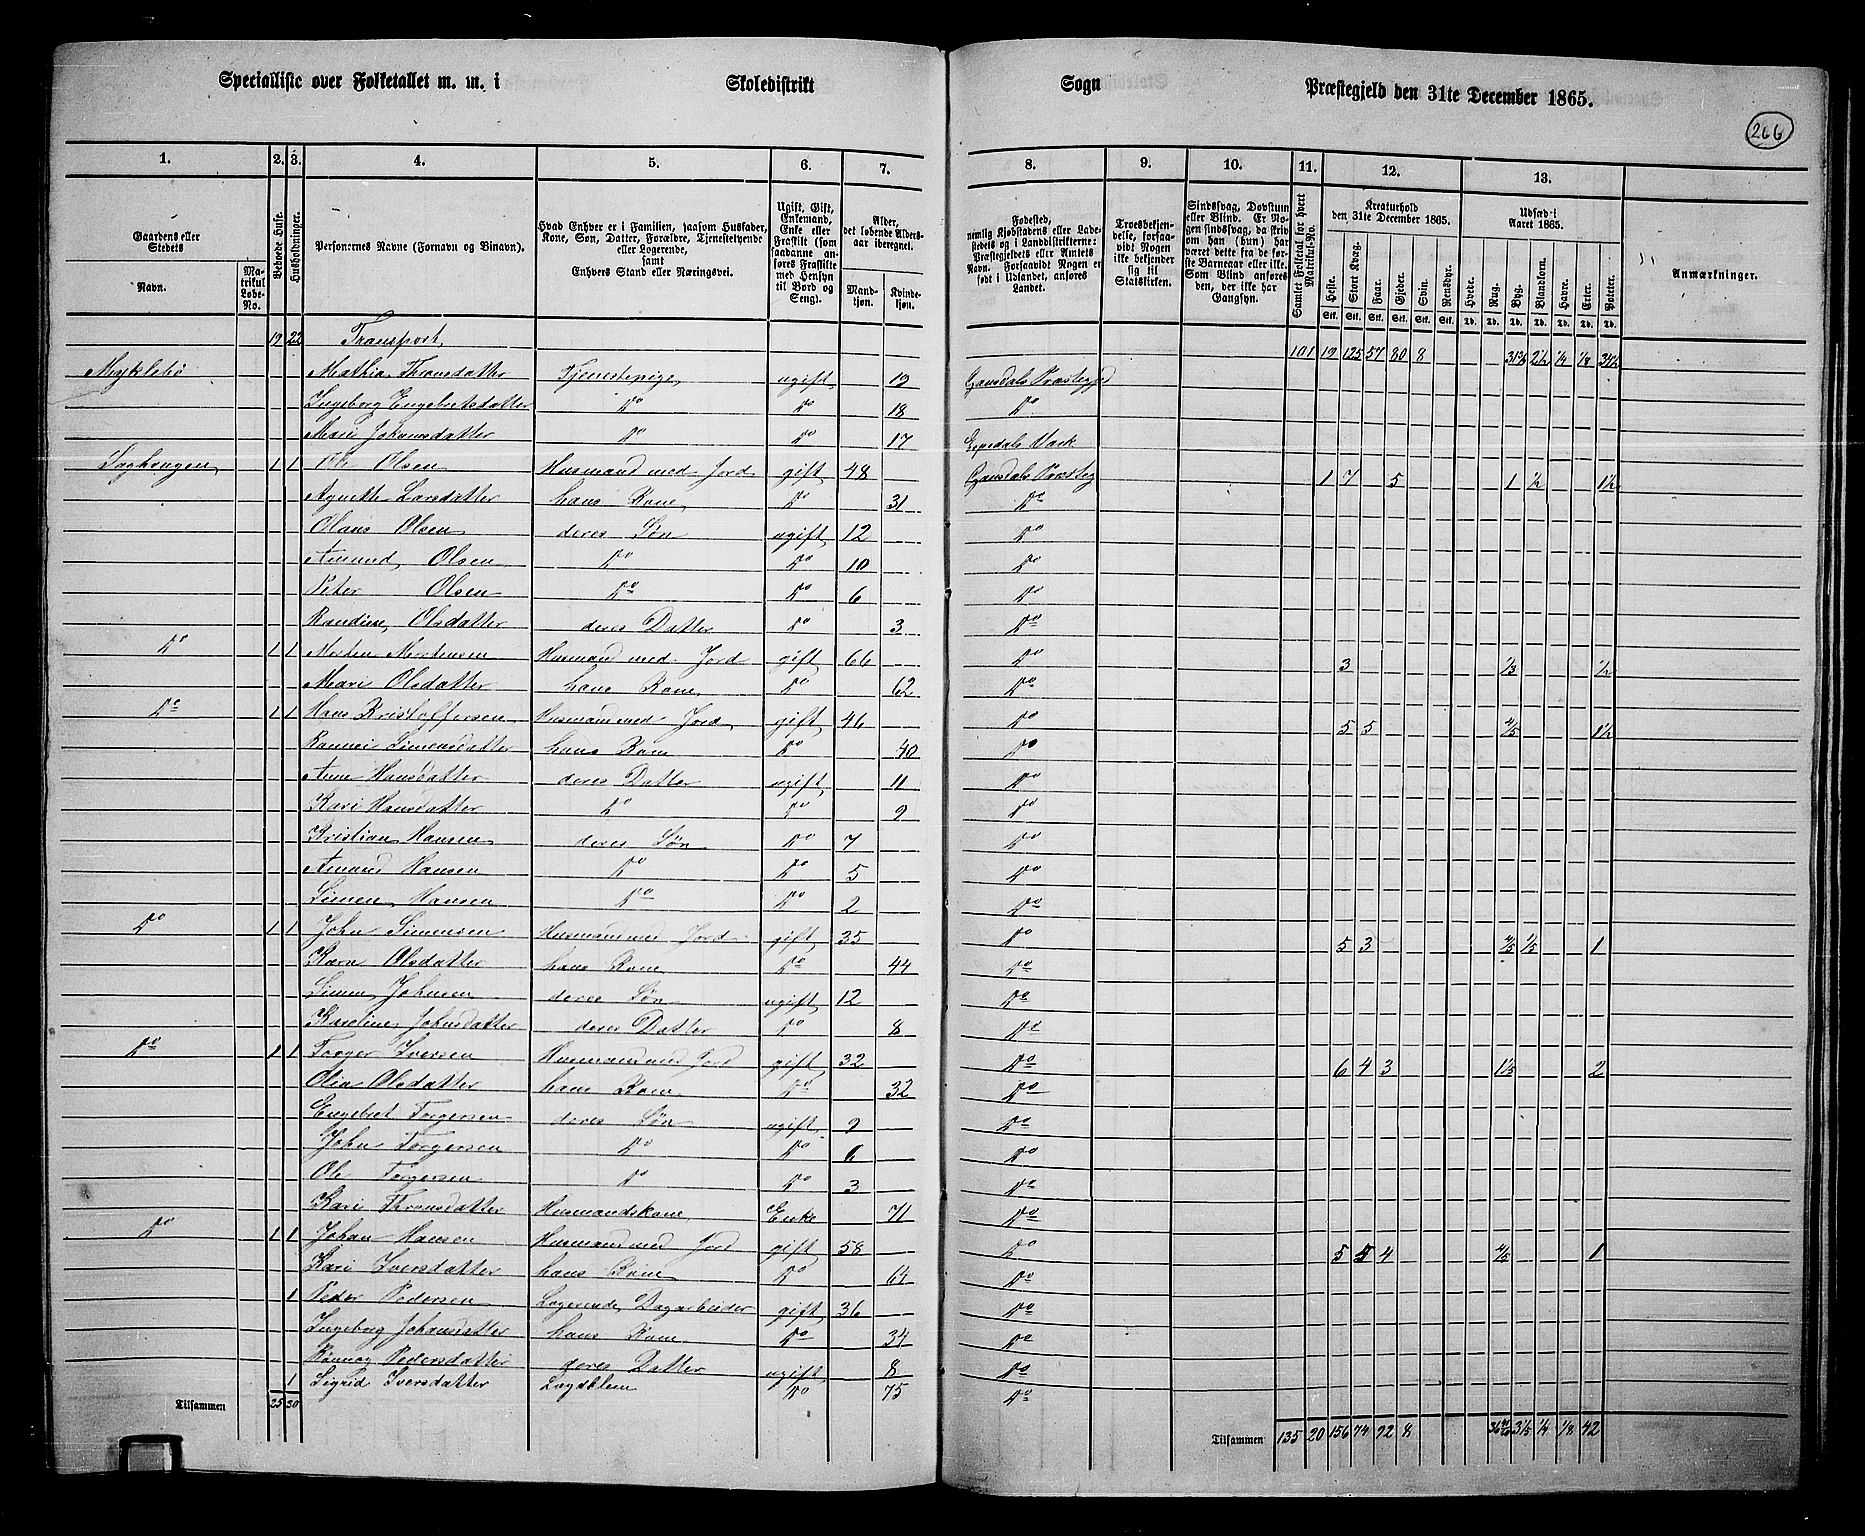 Specialliste over Folketallet m. m. i Skoledistrikt Sogn Præstegjeld den 31te December 1865.
266
1. 2. 3. 4. 5. 6. 7. 8. 9. 10. 11. 12. 13.
Gaardens eller Stedets
Navn.
Matrikul Løbe-No.
Beboede Huse.
Husholdninger.
Personernes Navne (Fornavn og Binavn).
Hvad Enhver er i Familien, saasom Husfader, Kone, Søn, Datter, Forældre, Tjenestetyende eller Logerende, samt Enhvers Stand eller Næringsvei.
Ugift, Gift, Enkemand, Enke eller Fraskilt (som saadanne anføres Fraskilte med Hensyn til Bord og Seng).
Alder, det løbende Aldersaar iberegnet.
Mandkjøn.
Kvindekjøn.
Fødested, nemlig Kjøbstadens eller Ladestedets og i Landdistrikterne: Præstegjeldets eller Amtets Navn. Forsaavidt Nogen er født i Udlandet, anføres Landet.
Troesbekjendelse, forsaavidt Nogen ikke bekjender sig til Statskirken.
Sindssvag, Døvstum eller Blind. Er Nogen sindssvag, da skriv om han (hun) har været dette fra de første Barneaar eller ikke. Som Blind anføres den, der ikke har Gangsyn.
Samlet Folketal for hvert Matrikul-No.
Kreaturhold den 31te December 1865.
Heste. Stort Kvæg. Faar. Gjeder. Svin. Rensdyr.
Stk. Stk. Stk. Stk. Stk. Stk.
Udsæd i Aaret 1865.
Hvede. Rug. Byg. Blandkorn. Havre. Erter. Poteter.
Td. Td. Td. Td. Td. Td. Td.
Anmærkninger.
19 22 Transport 101 19 125 57 80 8 2½ ¼ ⅛
Myklebø Mathia Thronsdatter Tjenestepige ugift 19 Gausdals Præstegjd
Ingeborg Engebretsdatter Do Do 18 Do
Mari Johansdatter Do Do 17
1 1 Ole Olsen Husmand med Jord gift 48 Gausdals Præsteg 1 7 5 1 ½ 1½
Agnethe Larsdatter hans Kone Do 31 Do
Olaus Olsen deres Søn ugift 12 Do
Amund Olsen Do Do 10 Do
Peter Olsen Do Do 6 Do
Randine Olsdatter deres Datter Do 3 Do
Do 1 1 Morten Mortensen Husmand med Jord gift 66 Do 3 ⅓ ½
Mari Olsdatter hans Kone Do 62 Do
Do 1 1 Hans Kristoffersen Husmand med Jord gift 46 Do 5 5 ⅘ 1½
Rannei Simensdatter hans Kone Do 40 Do
Anne Hansdatter deres Datter ugift 11 Do
Kari Hansdatter Do Do 9 Do
Kristian Hansen deres Søn Do 7 Do
Amund Hansen Do Do 5 Do
Simen Hansen Do Do 2 Do
Do 1 1 John Simensen Husmand med Jord gift 35 Do 5 3 ⅘ ⅕ 1
Karn Olsdatter hans Kone Do 44 Do
Simen Johnsen deres Søn ugift 12 Do
Karoline Johnsdatter deres Datter Do 8 Do
Do 1 1 Torger Iversen Husmand med Jord gift 32 Do 6 4 3 1⅕ 2
Olea Olsdatter hans Kone Do 32 Do
Engebret Torgersen deres Søn ugift 9 Do
John Torgersen Do Do 6 Do
Ole Torgersen Do Do 3 Do
Kari Thronsdatter Husmandskone Enke 71 Do
Do 1 1 Johan Hansen Husmand med Jord gift 58 Do 5 4 ⅘ 1
Kari Iversdatter hans Kone Do 64 Do
1 Peder Pedersen Logerende, Dagarbeider gift 36 Do
Ingeborg Johansdatter hans Kone Do 34 Do
Rønnog Pedersdatter deres Datter ugift 8 Do
1 Sigrid Iversdatter Lægdslem Do 75 Do
Tilsammen 25 30 Tilsammen 135 20 156 74 92 8 3⅕ ¼ ⅛ 42